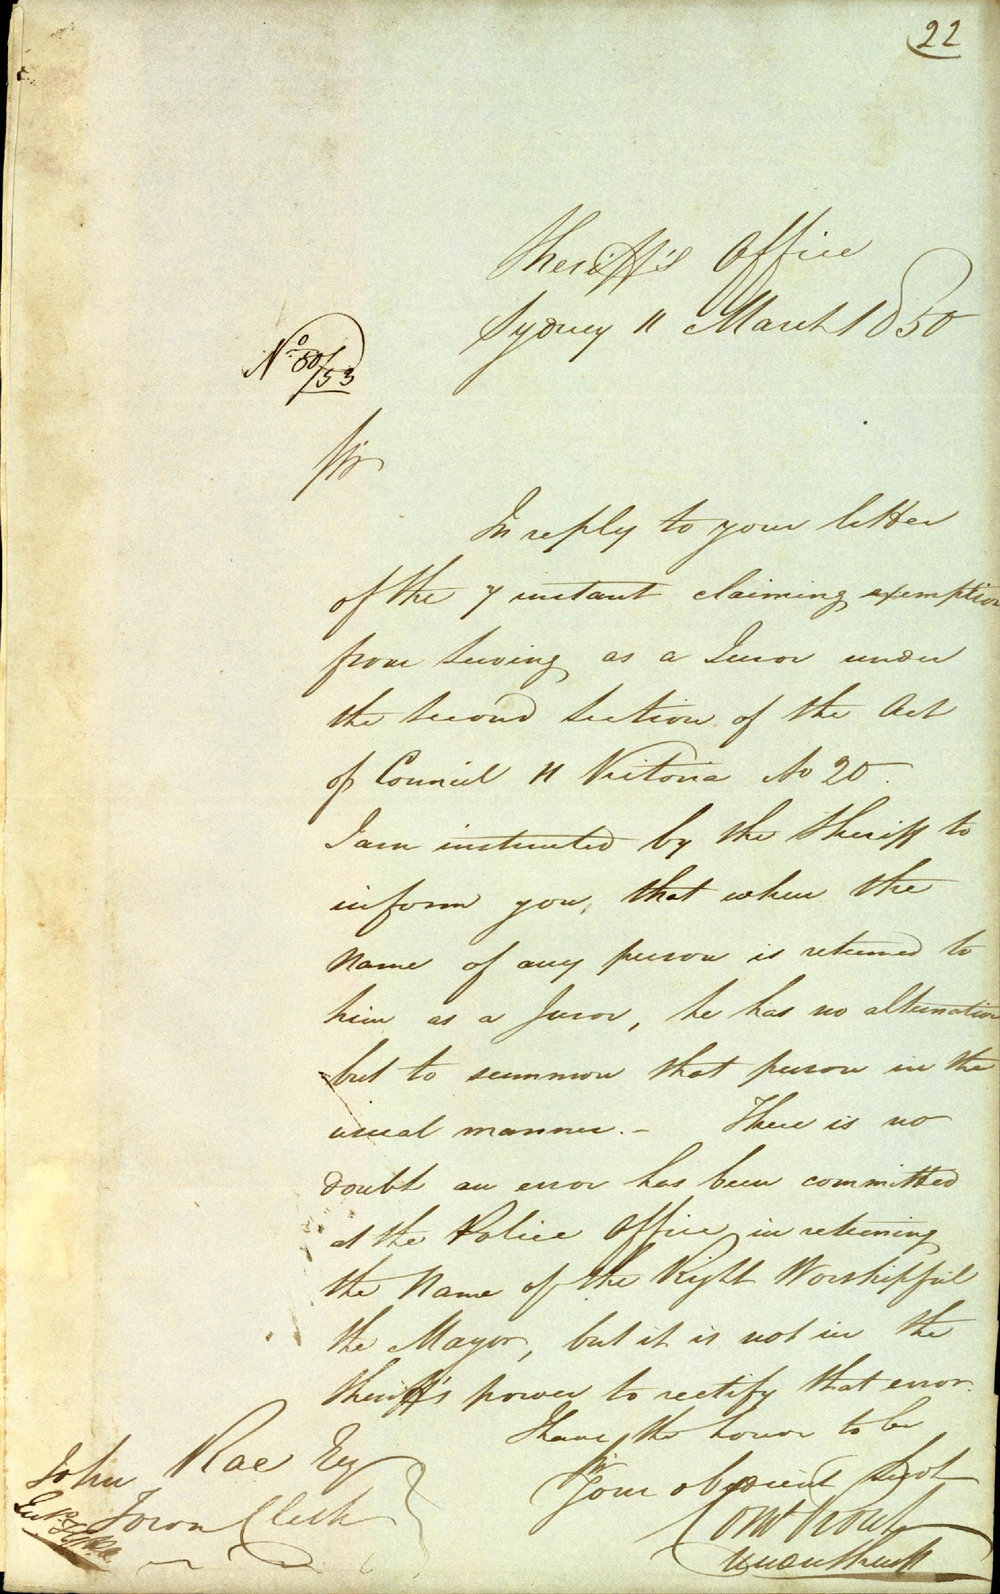 22
Sheriff's Office
Sydney 11 March 1850
No 50/153
Sir
In reply to your letter
of the 7 instant claiming exemption
from serving as a Juror under
the second section of the Act
of Council 11 Victoria No 20.
I am instructed by the Sheriff to
inform you, that when the
name of any person is returned to
him as a Juror, he has no alternative
but to summon that person in the
usual manner. – There is no
doubt an error has been committed
at the Police Office in returning
the Name of the Right Worshipful
the Mayor, but it is not in the
Sheriff's power to rectify that error.
I have the honor to be
Sir
Your obedient Servt
Under Sheriff
John Rae Esq
Town Clerk